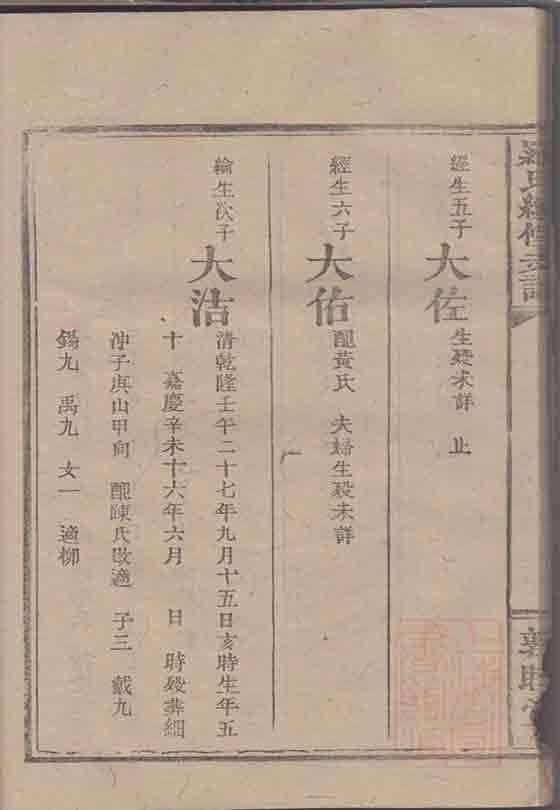 羅氏續修支譜
經生五子
大佐
生殁未詳 止
經生六子
大佑
配黃氏 夫婦生殁未詳
綸生次子
大沽
清乾隆壬午二十七年九月十五日亥時生年五
十 嘉慶辛未十六年六月 日 時殁葬細
冲子庚山甲向 配陳氏改適 子三 戴九
錫九 禹九 女一 適柳